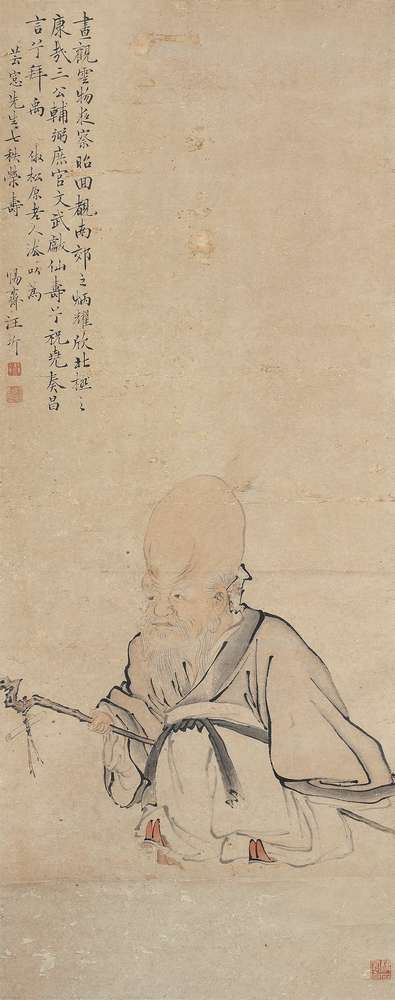 晝觀雲物夜察昭回覩南郊之炳耀欣北極之
康哉三公輔弼庶官文武獻仙壽兮祝堯奏昌
言兮拜禹 倣松原老人法以為
芸窓先生七秩榮壽 惕齋汪圻